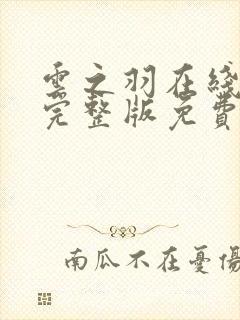 雲之羽在綫
完整版免費
南瓜不在憂傷